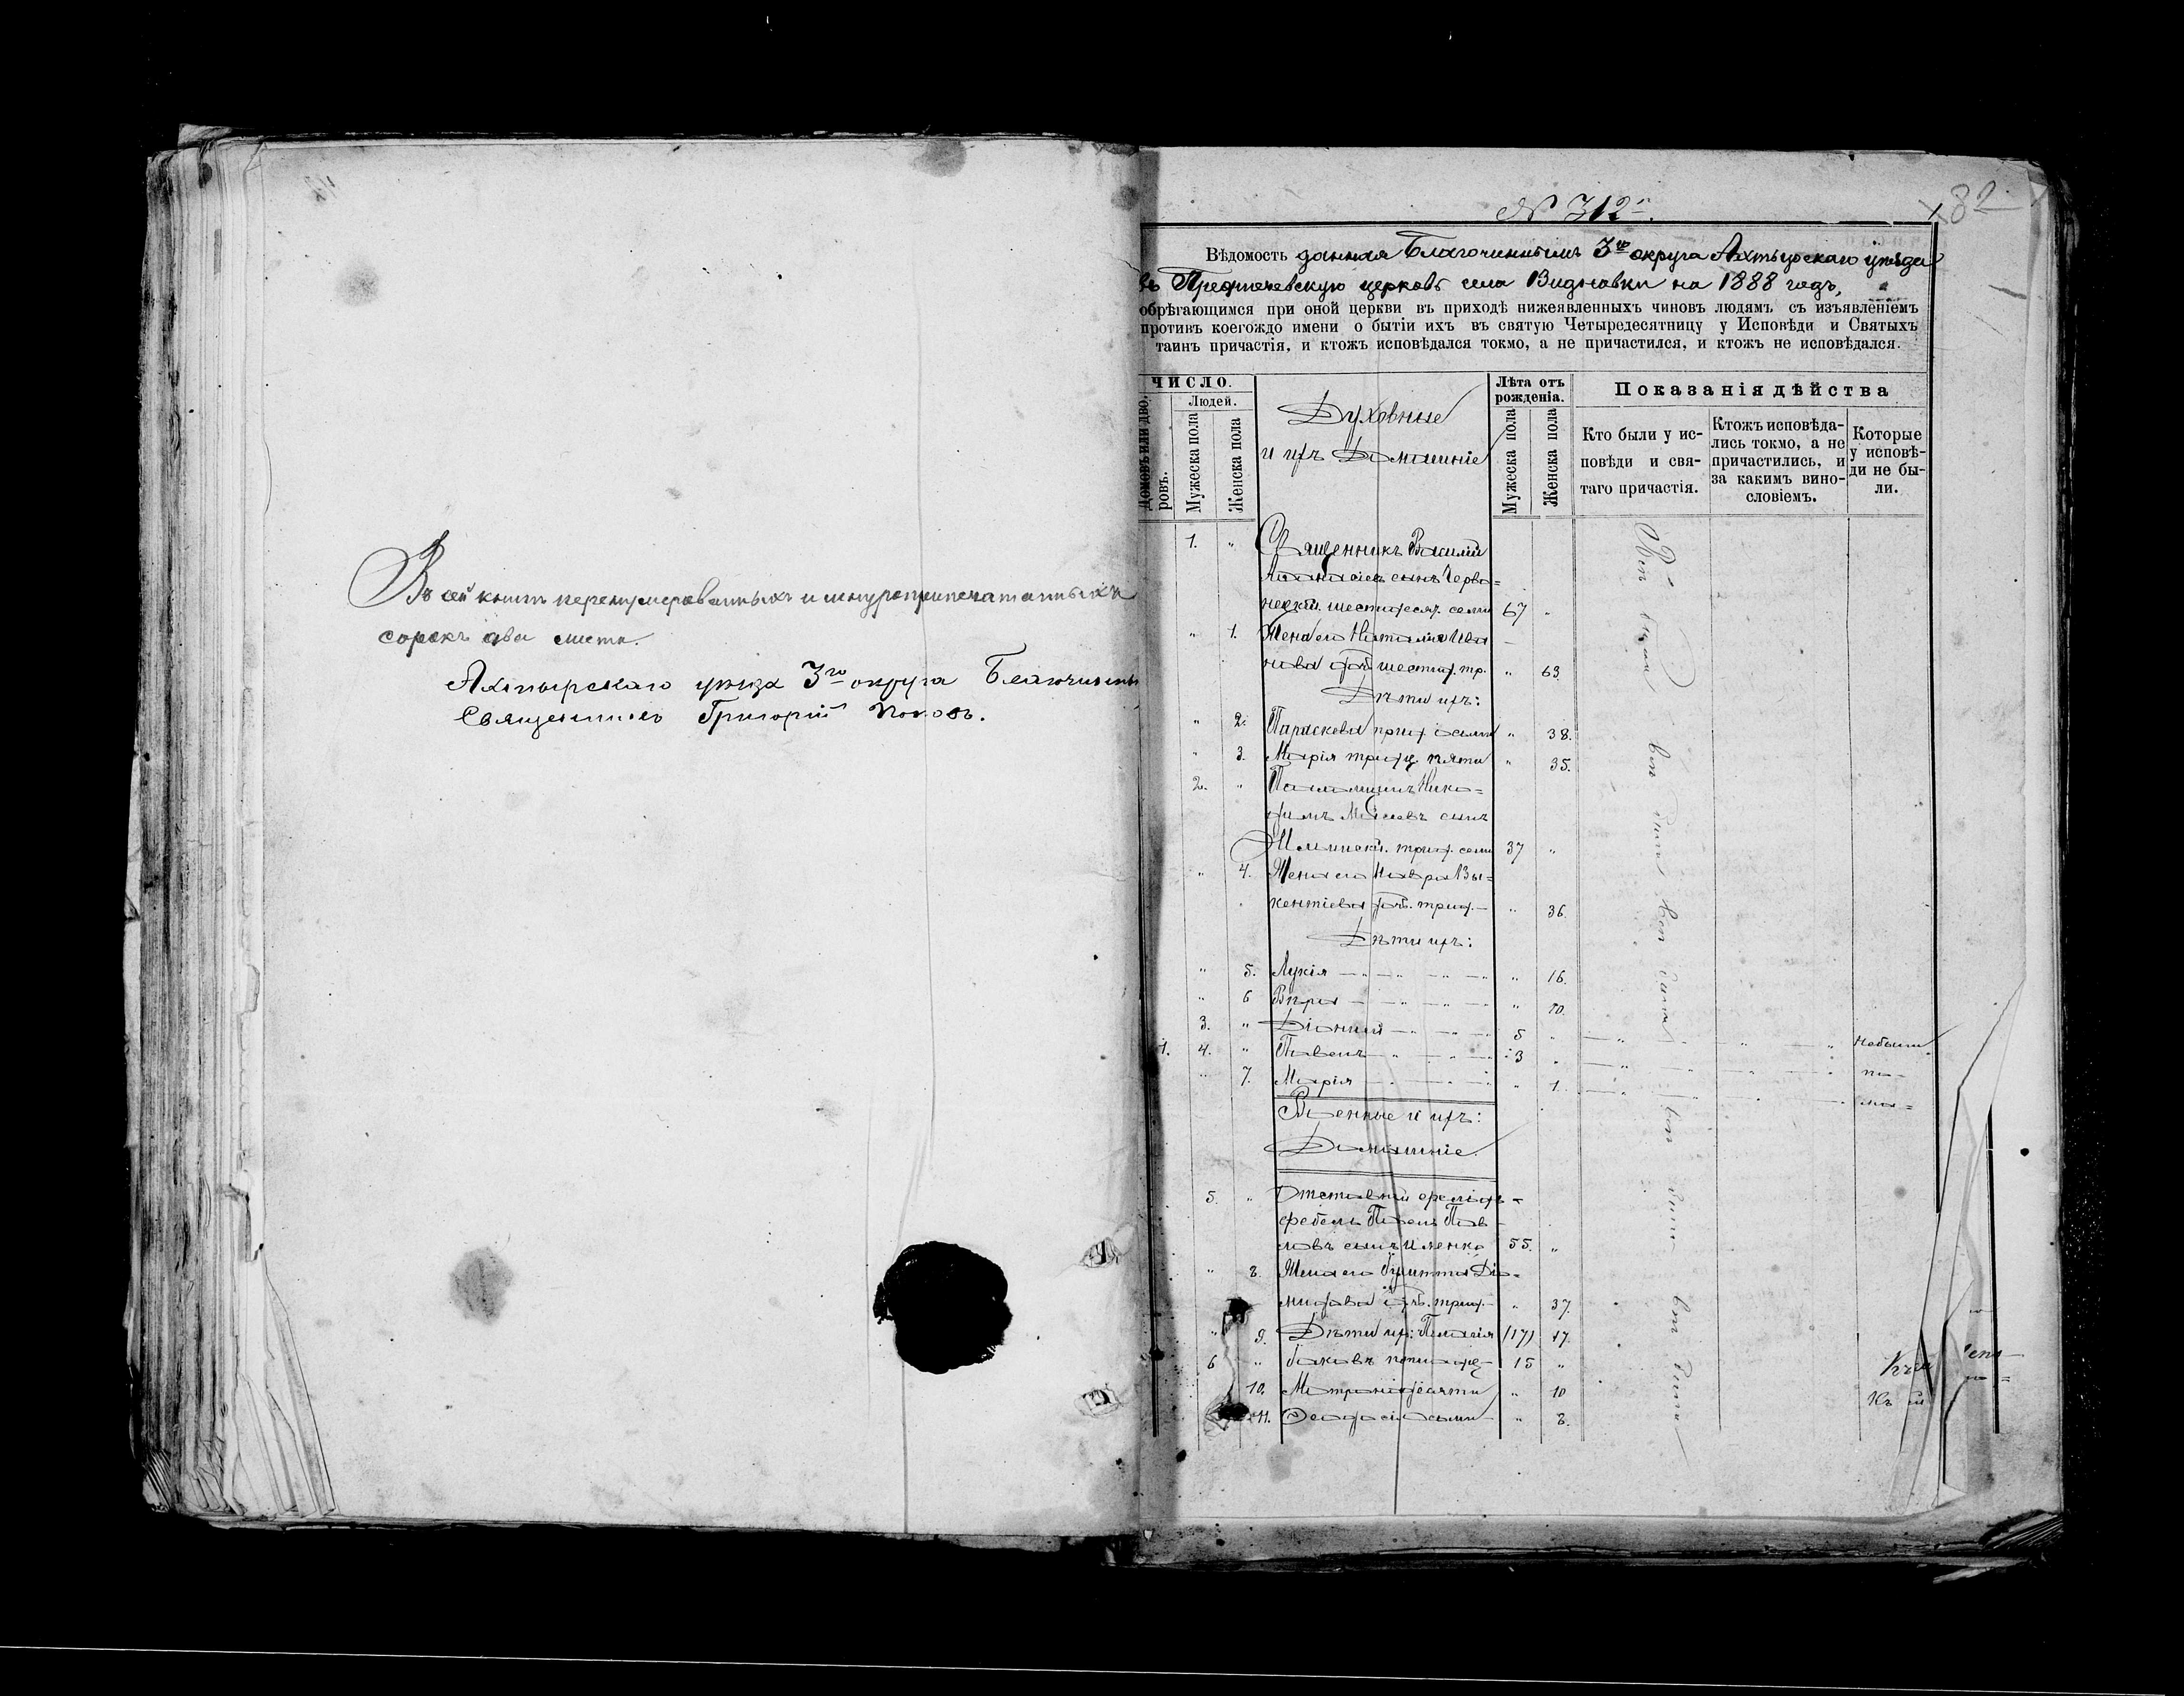 Въ сей книгѣ перенумерованныхъ и шнуроприпечатанныхъ
сорокъ два листа.
Ахтырскаго уѣзда 3го округа Благочинный
Священникъ Григорій Поповъ.
№ 312й.
82
Вѣдомость данная Благочиннымъ 3го округа Ахтырскаго уѣзда
въ Предтечевскую церковь села Видновки на 1888 годъ,
обрѣтающимся при оной церкви въ приходѣ нижеявленныхъ чиновъ людямъ съ изъявленіемъ
противъ коегождо имени о бытіи ихъ въ святую Четыредесятницу у Исповѣди и Святыхъ
таинъ причастія, и ктожъ исповѣдался токмо, а не причастился, и ктожъ не исповѣдался.
ЧИСЛО.
Домовъ или дворовъ.
Людей.
Мужеска пола
Женска пола
Духовные
и ихъ Домашніе
Лѣта отъ
рожденія.
Мужеска пола
Женска пола
Показанія дѣйства
Кто были у ис-
повѣди и свя-
таго причастія.
Ктожъ исповѣда-
лись токмо, а не
причастились, и
за какимъ вино-
словіемъ.
Которые
у исповѣ-
ди не бы-
ли.
1. " Священникъ Василій
Аѳанасіевъ сынъ Черво=
нецкій. шестидеся. семи 67 "
" 1. Жена его Наталія Ива
нова дочь шестид. тр. " 63.
Дѣти ихъ:
" 2. Параскева трид. осьми " 38.
" 3. Марія тридц. пяти " 35.
2. " Псаломщикъ Нико=
димъ сынъ
трид. семи 37 "
" 4. Жена его
кентіева доч. трид. — " 36.
Дѣти ихъ:
" 5. Лукія — " — " 16.
" 6 Вѣра — " — " 10.
3. " Діонисій — " — 5 "
1. 4. " Павелъ — " — 3 "
" 7. Марія — " — " 1.
Небыли
по —
мал=
Военные и ихъ:
Домашніе.
5. " Отставной фельд=
фебель Павелъ Пав-
ловъ сынъ 55. "
" 8. Жена его
доч. трид.— " 37.
" 9. Дѣти ихъ: Пелагія (17) 17.
6 " Іаковъ пятнадц— 15 "
10. Матрона десяти " 10
11. Ѳеодосія осьми — " 8.